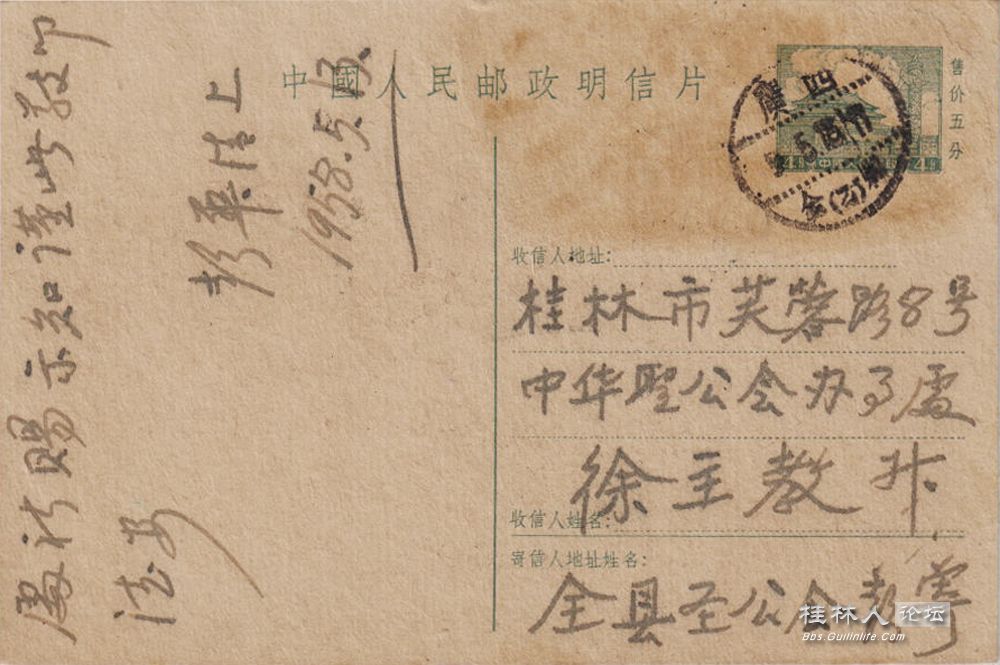 中國人民邮政明信片
售价五分
廣西
收信人地址:
桂林市芙蓉路8号
中华聖公会办事處
徐主教
收信人姓名:
寄信人地址姓名:
全县圣公会彭寄
處祈賜示知謹此敬叩
安
彭華上
1958.5.13.
桂林人论坛
Bbs.Guilinlife.com